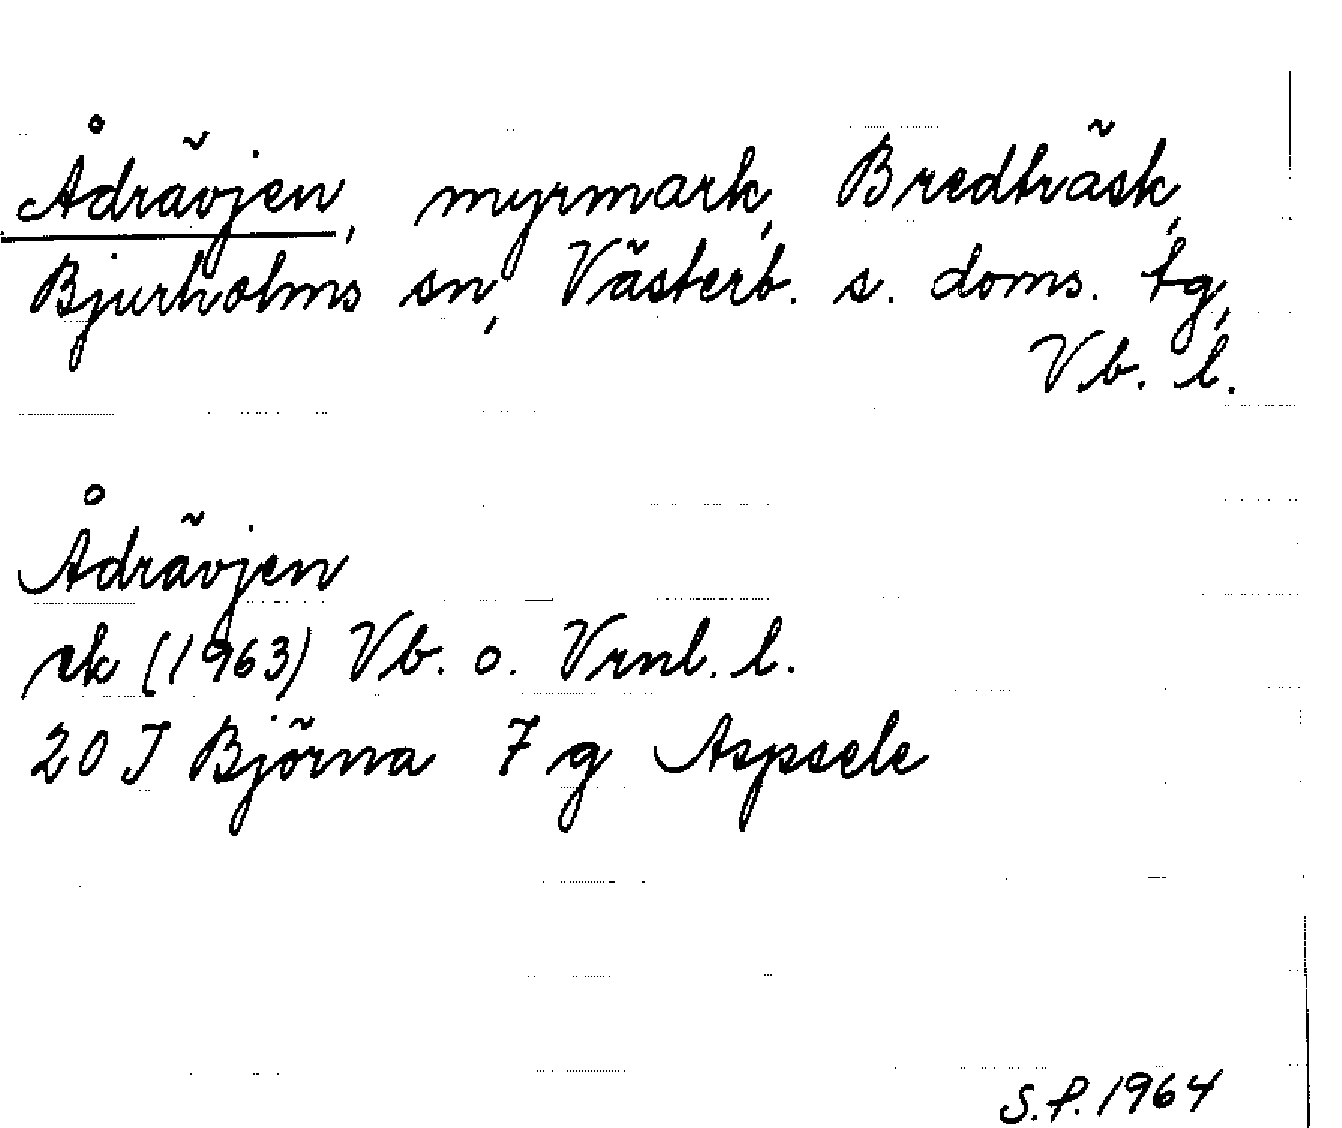 Ådrävjen, myrmark, Bredträsk,
Bjurholms sn, Västerb. s. doms. tg,
Vb. l.
Ådrävjen
ek (1963) Vb. o. Vrnl. l.
20 J Björna 7 g Aspsele
S.P. 1964